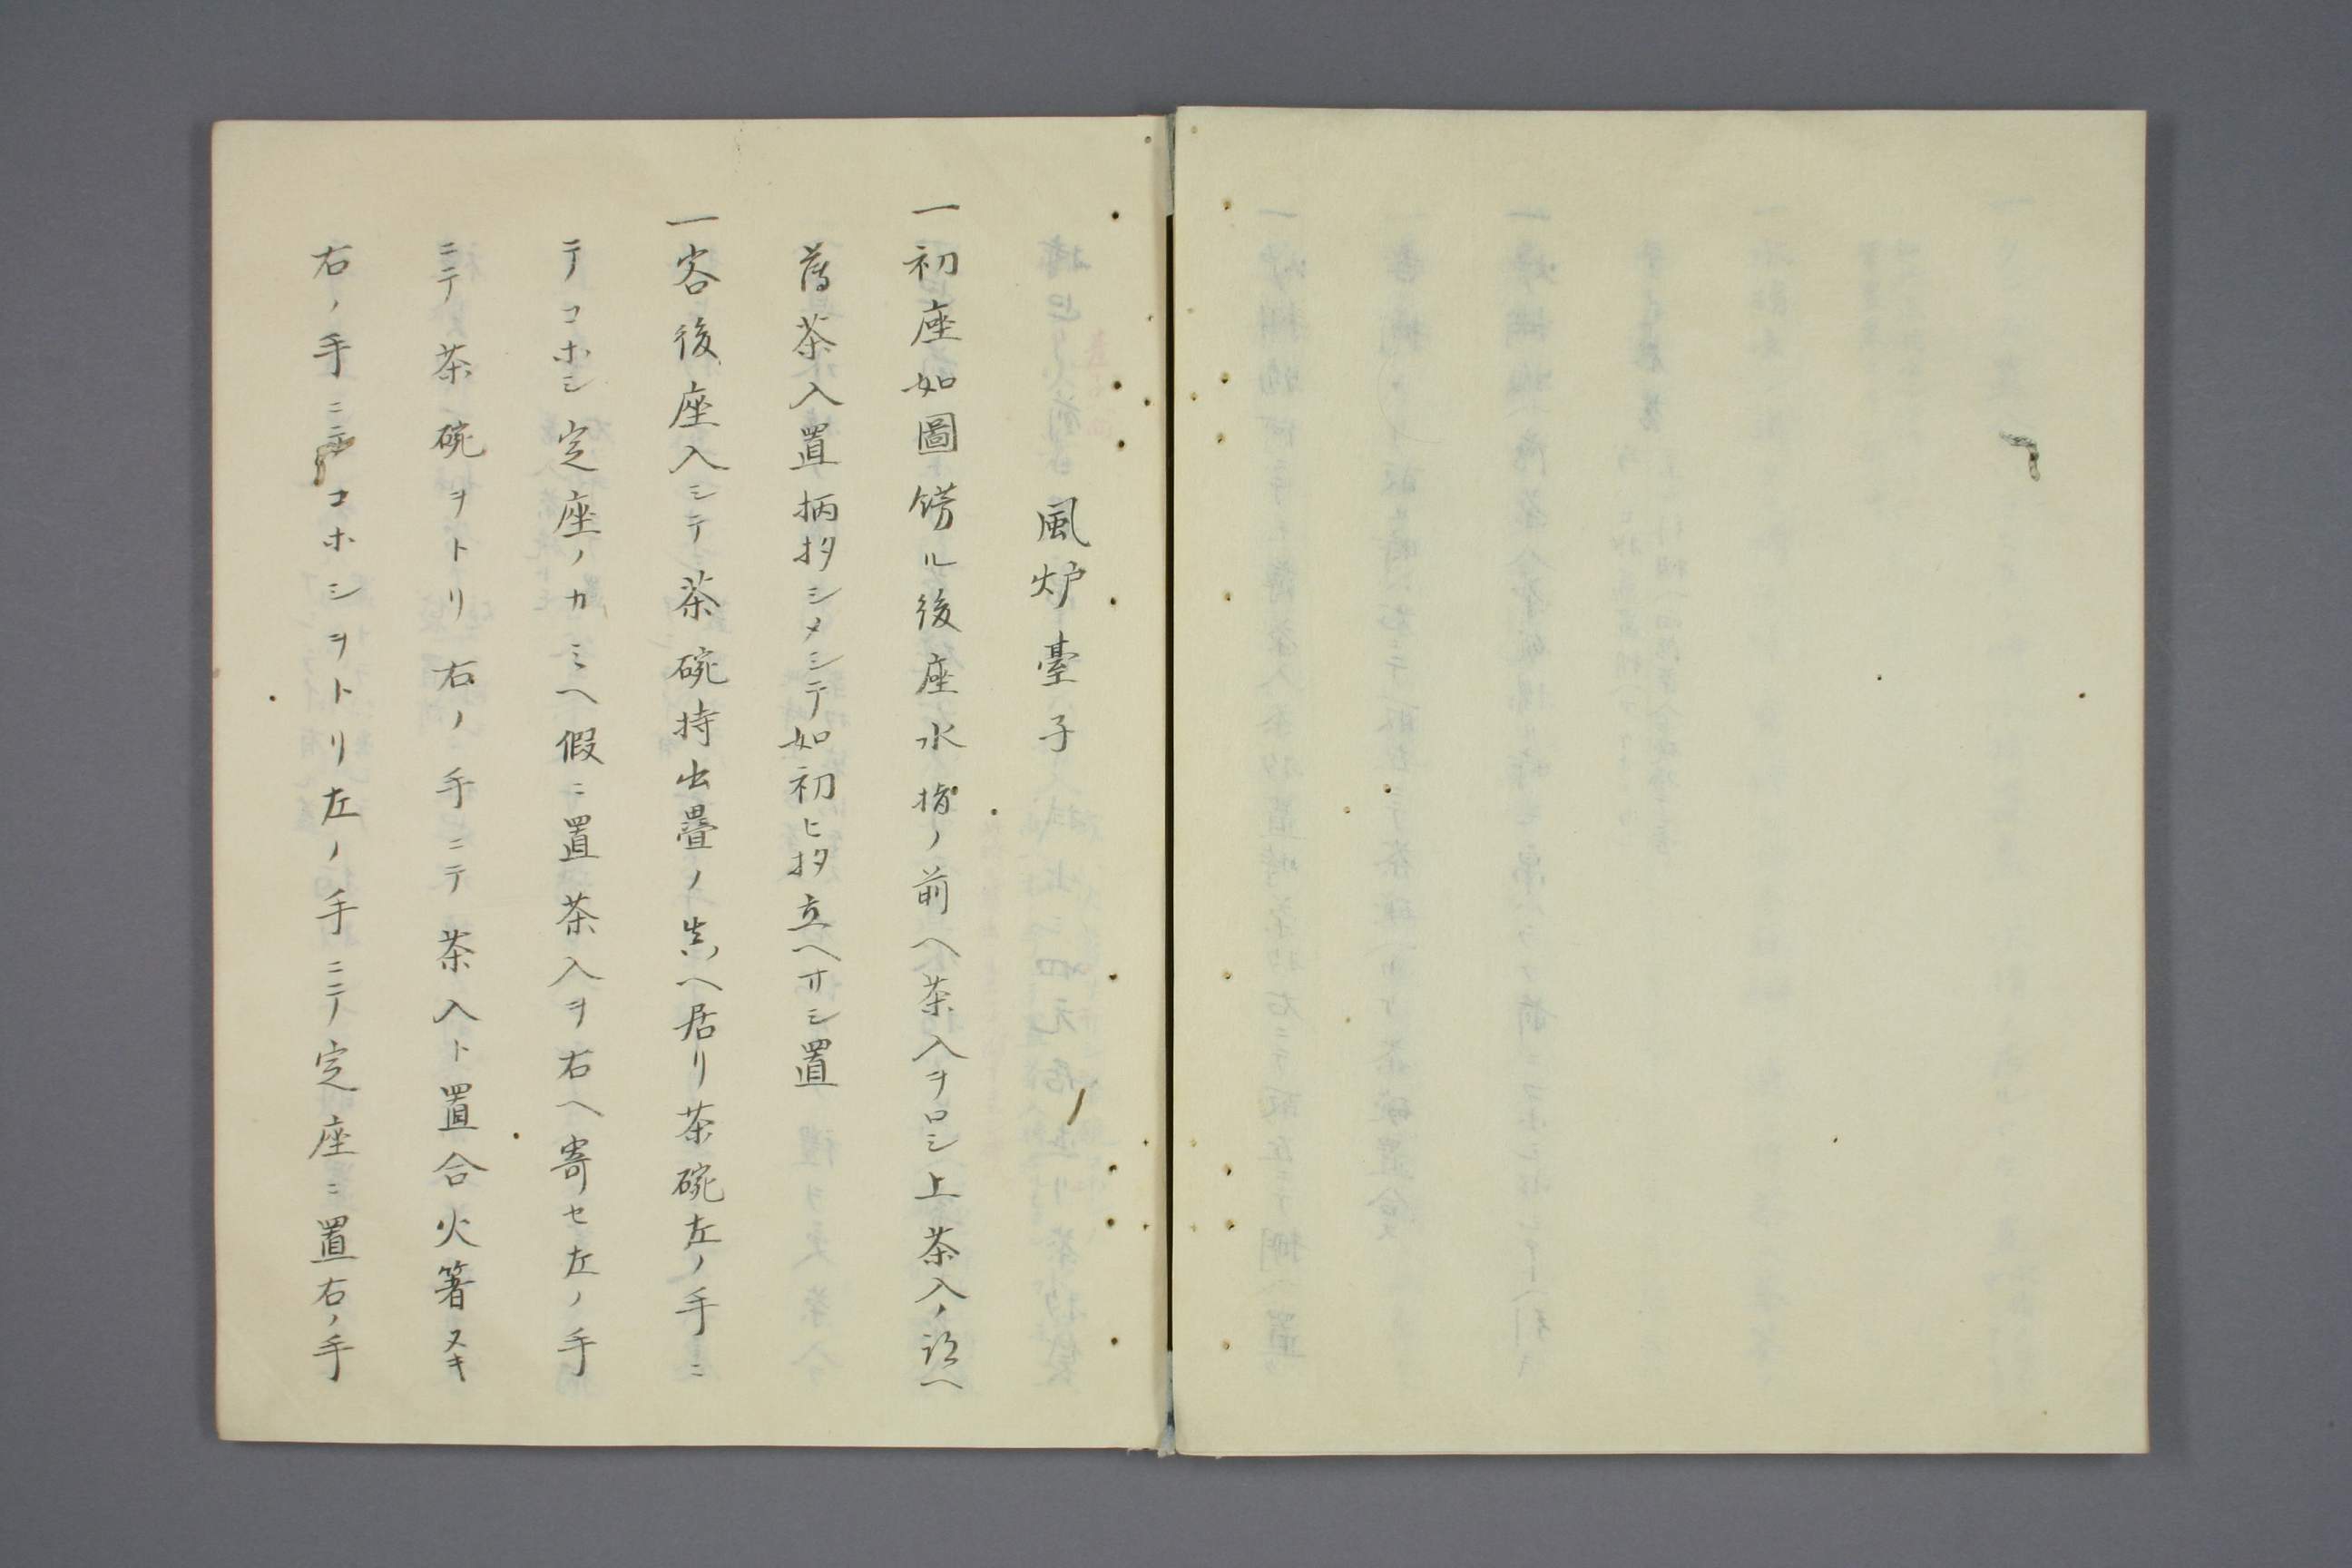 風炉臺子
一初座如圖餝ル後座水指ノ前ヘ茶入ヲロシ上茶入ノ跡ヘ
薄茶入置柄杓シメシテ如初ヒ杓立ヘサシ置
一客後座入シテ茶碗持出疊ノ眞ヘ居リ茶碗左ノ手ニ
テコホシ定座ノカミヘ假ニ置茶入ヲ右ヘ寄セ左ノ手
ニテ茶碗ヲトリ右ノ手ニテ茶入ト置合火箸ヌキ
右ノ手ニテコホシヲトリ左ノ手ニテ定座ニ置右ノ手